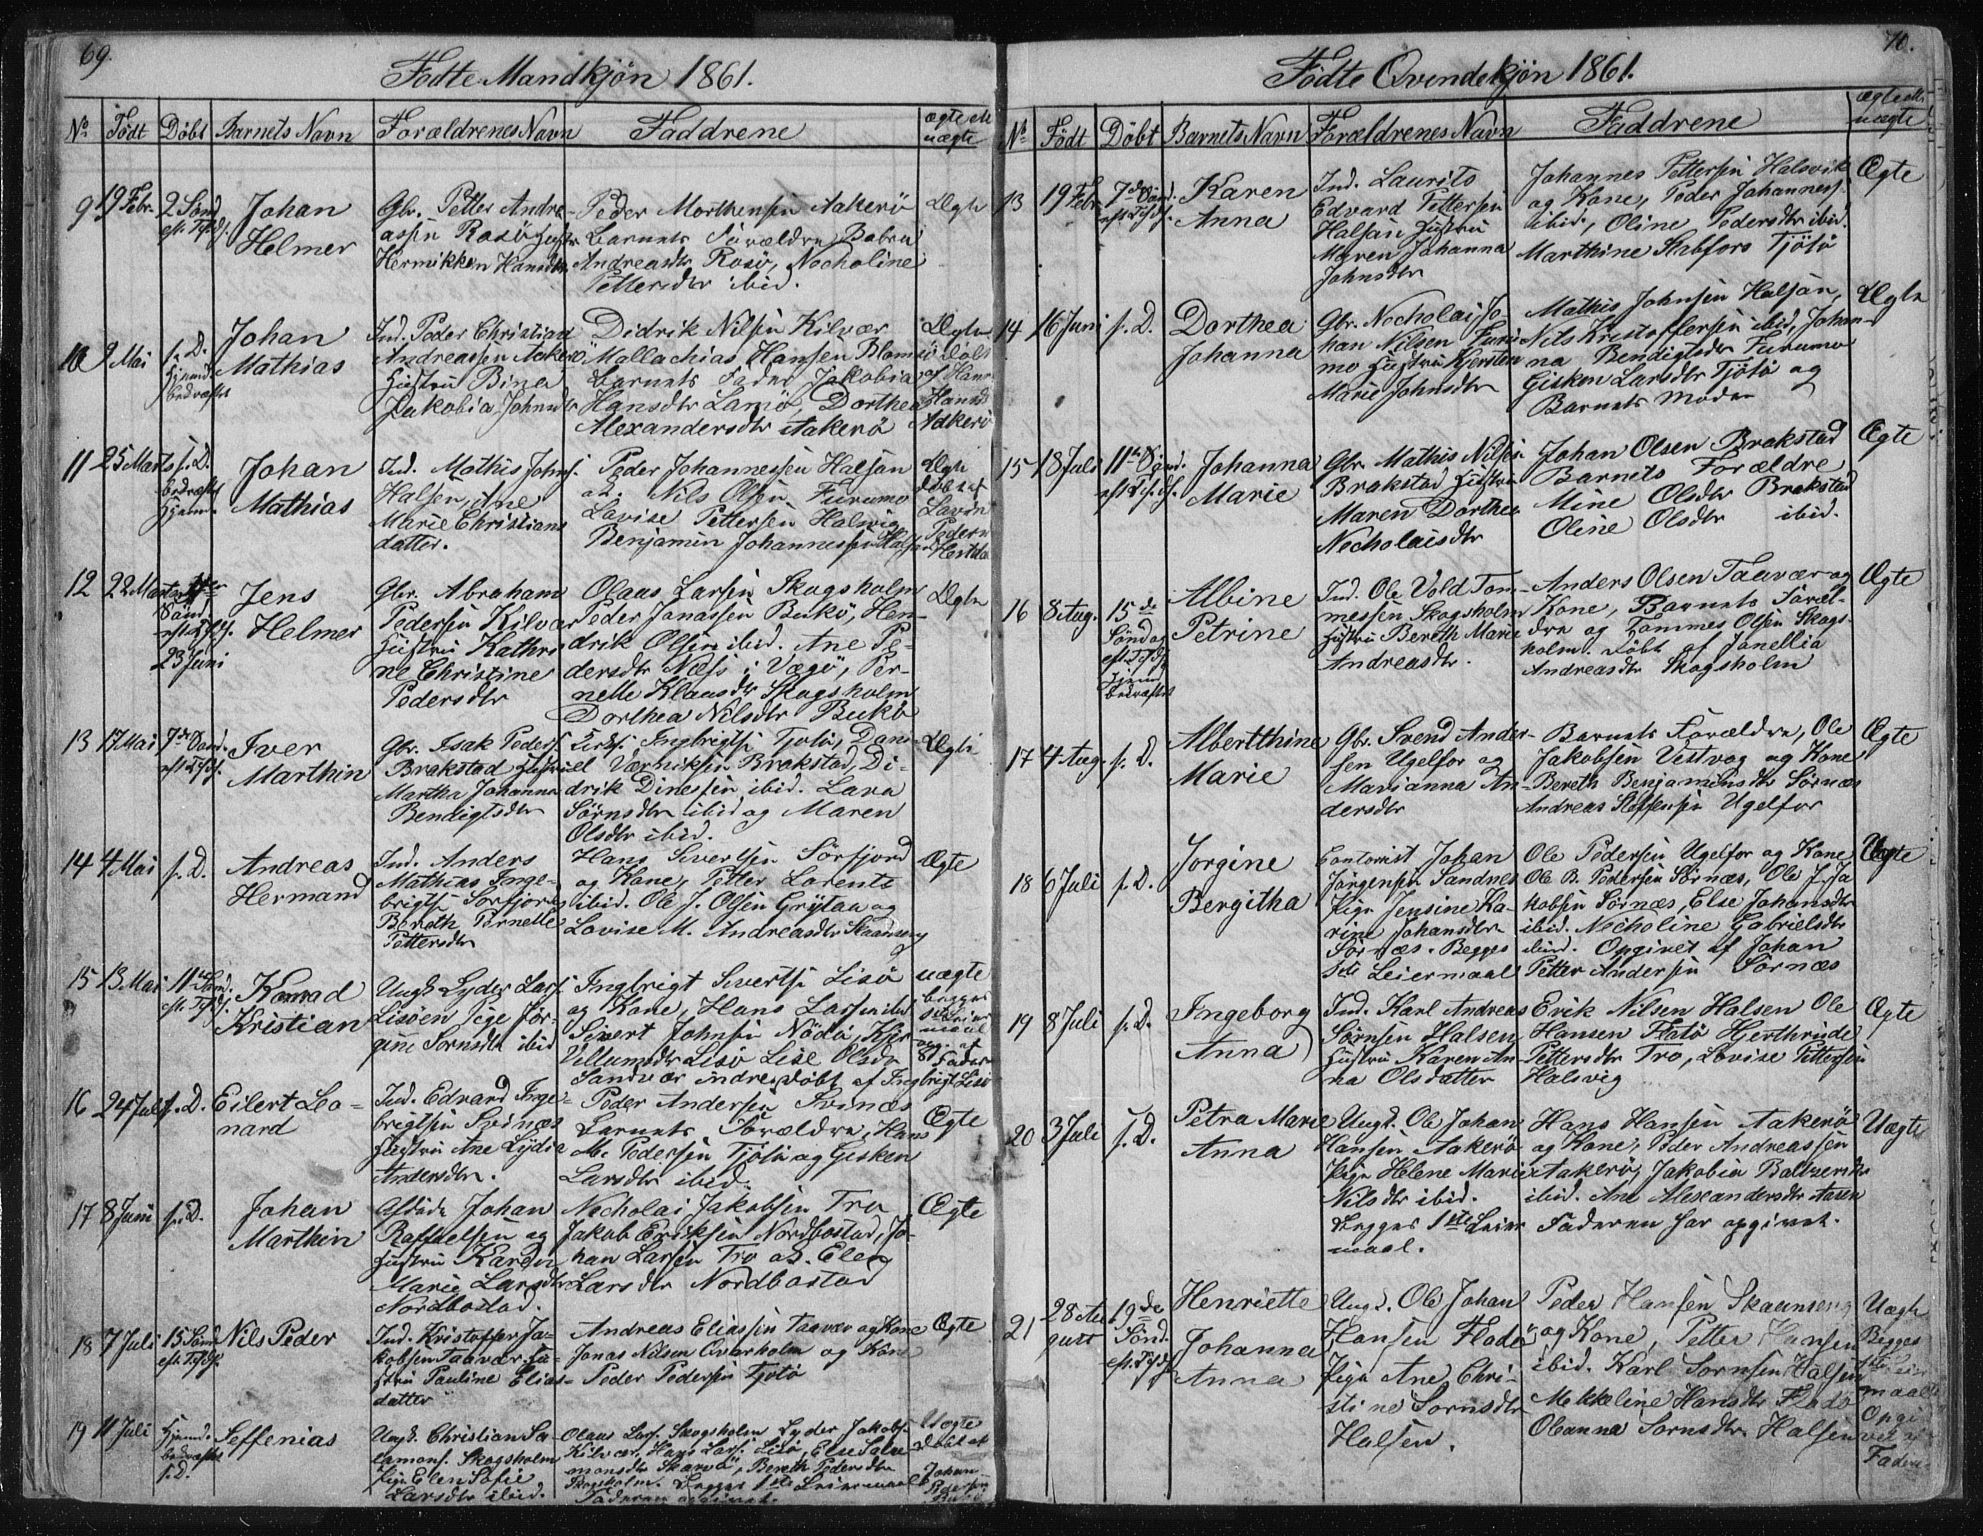 69.
Fødte Mandkjøn 1861.
No Født Døbt Barnets Navn Forældrenes Navn Faddrene ægte el. uægte
9 19 Febr. 2 Sønd. eft. Tfsds. Johan Helmer
Gbr. Petter Andre-
assen Rosø Hustr
Hermikken Hansdtr
Peder Morthensen Aakerø
Barnets Forældre
Andreasdtr Rosø, Necholine
Pettersdtr ibid.
Ægte
10 2 Mai s. D. Hjemd. bedræftet Johan Mathias
Ind. Peder Christian
Andreassen Aakerø
Hustru Bina
Jakobia Johnsdtr
Didrik Nilsen Kilvær
Mallachias Hansen Blomsø
Barnets Fader Jakobia
Hansdtr Lamø, Dorthea
Alexandersdtr Aakerø
Ægte
Døbt
af Hans
Hansen
Aakerø
11 25 Marts s. D. bedræftet Hjemd. Johan Mathias
Ind. Mathis Johns.
Halsen, Ane
Marie Christians
datter.
Peder Johannessen Halsan
Nils Olsen Furumo
Lavise Pettersen Halsvig
Benjamin Johannessen Halsen
Ægte
døbt af
12 22 Marts Sønd. eft. Tfsds. 23 Juni Jens Helmer
Gbr. Abraham
Pedersen Kilvær
Hustru Kathri
ne Christine
Pedersdtr
Olaus Larsen Skogsholm
Peder Jonassen Bukø, Hen-
drik Olsen ibid. Ane Pe-
dersdtr Næss i Vægø, Per-
nelle Klausdtr Skogsholm
Dorthea Nilsdtr Bukø
Ægte
13 17 Mai 7de Sønd. eft. Tfsds. Iver Marthin
Gbr. Isak Peders.
Brakstad Hustru
Martha Johanna
Bendigtsdtr
Ingbrigts. Tjøtø, Dan-
el Værniksen Brakstad, Di-
drik Dinessen ibid. Lava
Sørnsdtr ibid og Maren
Olsdtr ibid.
Ægte
14 4 Mai s. D. Andreas Hermand
Ind. Anders
Mathias Inge-
brigts. Sørfjord
Bereth Pernelle
Pettersdtr
Hans Sivertsen Sørfjord
og Kone, Petter Lorents
ibid. Ole J. Olsen Grytaa og
Lovise M. Andreasdtr Skaanseng
Ægte
15 13 Mai 11te Sønd. eft. Tfsds. Konrad Kristian
Ungk. Lyder Lars.
Lisøen Pige Jør-
gine Sørnsdtr ibid
Ingbrigt Sivertsn Lisø
og Kone, Hans Larsen ibid
Sivert Johnsen Nødø,
Villumsdtr Lisø Lise Olsdr
Sandvær indre, døbt af Ingbrigt Lisø
uægte
begges
Leier
maal
opg. af
Fader
16 24 Juli s. D. Eilert Leo-
nard
Ind. Edvard Inge-
brigtsen Svinæs
Hustru Ane Lydia
Andersdtr.
Peder Andersen Svinæs
Barnets Forældre, Hans
M. Pedersen Tjøtø og Gisken
Larsdtr ibid.
Ægte
17 8 Juni s. D. Johan Marthin
Johan
Rafaelsen og
Hustru Karen
Marie Larsdtr
Nordbostad.
Necholai Jakobsen Tro
Jakob Eriksen Nordbostad, Jo-
han Larsen Tro og Elen
Larsdtr Nordbostad
Ægte
18 7 Juli 15 Sønd. eft. Tfsds. Nils Peder
Ind. Kristoffer Ja-
kobsen Taavær Hu-
stru Pauline Elias-
datter
Andreas Eliassen Taavær og Kone
Jonas Nilsen Qvarholm og Kone
Peder Pedersen Tjøtø
Ægte
19 11 Juli Hjemd. bedræftet s. D. Seffenias
Ungk. Christian Sa-
lamons. Skogsholm
Pige Elen Sofie
Larsdtr ibid.
Olaus Lars. Skogsholm Lyder Jakobs.
Kilvær, Hans Lars. Lisø, Else Sala-
monsdtr Skarvø, Bereth Pedersdtr
Skogsholm. Begges 1ste Leiermaal
Faderen opgivet.
Uægte
Døbt af
Johan
Pedersen
70.
Fødte Qvindekjøn 1861.
No Født Døbt Barnets Navn Forældrenes Navn Faddrene ægte el. uægte
13 19 Febr. 7de Sønd. eft. Tfsds. Karen Anna
Ind. Laurits
Edvard Pettersen
Halsan Hustru
Maren Johanna
Johnsdtr
Johannes Pettersen Halsvik
og Kone, Peder Johannes.
ibid, Oline Pedersdtr ibid.
Marthine Stabfors Tjøtø
Ægte
14 16 Juni s. D. Dorthea Johanna
Gbr. Necholai Jo-
han Nilsen Furu
mo Hustru Kjersten
Marie Johnsdtr
Mathis Johnsen Halsan,
Nils Kristoffersen ibid, Johan-
na Bendigtsdr Furumo
Gisken Larsdtr Tjøtø og
Barnets Moder
Ægte
15 18 Juli 11te Sønd. eft. Tfsds. Johanna Marie
Gbr. Mathis Nilsen
Brakstad Hustru
Maren Dorthea
Necholaisdtr
Johan Olsen Brakstad
Barnets Forældre
Mine Olsdtr Brakstad
Oline Olsdtr ibid.
Ægte
16 8 Aug. 15de Søndag eft. Tfsds. Hjemd bedræftet Albine Petrine
Ind. Ole Vold Tom-
messen Skogsholm
Hustru Bereth Marie
Andreasdtr.
Anders Olsen Taavær og
Kone, Barnets Foræl-
dre og Tommes Olsen Skogs-
holm. Døbt af Janellia
Andreasdtr Skogsholm
Ægte
17 4 Aug. s. D. Albertthine Marie
Gbr. Svend Ander-
sen Ugelfor og
Marianna An-
dersdtr
Barnets Forældre, Ole
Jakobsen Vestvog og Kone
Bereth Benjaminsdtr Sørnæs
Andreas Steffensen Ugelfor
Ægte
18 6 Juli s. D. Jorgine Bergitha
Contorist Johan
Jørgensen Sandnes
Pige Jensine Ka-
rine Johansdtr
Sørnæs. Begges
1ste Leiermaal
Ole Pedersen Ugelfor og Kone
Ole B. Pedersen Sørnæs, Ole J. Ja
kobsen Sørnæs, Else Johansdtr
ibid. Necholine Gabrielsdtr
ibid. Opgivet af Johan
Petter Andersen Sørnæs
Uægte
19 8 Juli s. D. Ingeborg Anna
Ind. Karl Andreas
Sørnsen Halsen,
Hustru Karen An-
na Olsdatter
Erik Nilsen Halsen Ole
Hansen Flatø Hjerthride
Pettersdtr Tro, Lovise Pettersen
Halsvig
Ægte
20 3 Juli s. D. Petra Marie Anna
Ungk. Ole Johan
Hansen Aakerø
Pige Helene Marie
Nilsdtr ibid.
Begges 1ste Leier
maal.
Hans Hansen Aakerø
og Kone, Peder Andreassen
Aakerø, Jakobia Baltzersdtr
ibid. Ane Alexandersdtr Aasen
Faderen har opgivet.
Uægte
21 28 August 19de Sønd. eft. Tfsds. Henriette Johanna Anna
Ungk. Ole Johan
Hansen Flodø
Pige Ane Chri-
stine Sørnsdtr
Halsen.
Peder Hansen Skaanseng
og Kone, Petter Hansen
ibid. Karl Sørnsen Halsen
Mekkeline Hansdtr Flodø
Oleanna Sornsdtr. Halsen
Uægte
Begges
1ste Leier
maal
Opgi
vet af
Faderen